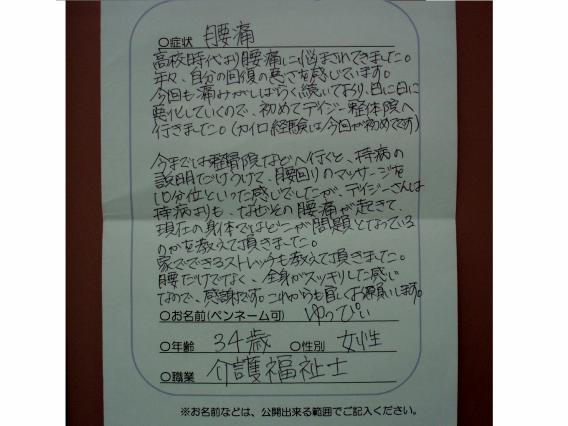 ○症状 腰痛
高校時代より腰痛に悩まされてきました。
年々、自分の回復の悪さを感じています。
今回も痛みがしばらく続いており、日に日に
悪化していくので、初めてデイジー整体院へ
行きました。(カイロ経験は今回が初めてです)
今までは整骨院などへ行くと、持病の
説明だけうけて、腰回りのマッサージを
10分位といった感じでしたが、デイジーさんは
持病よりも、なぜその腰痛が起きて、
現在の身体ではどこが問題となっている
のかを教えて頂きました。
家でできるストレッチも教えて頂きました。
腰だけでなく、全身がスッキリした感じ
なので、感謝です。これからも宜しくお願いします。
○お名前(ペンネーム可) ゆっぴぃ
○年齢 34歳 ○性別 女性
○職業 介護福祉士
※お名前などは、公開出来る範囲でご記入ください。